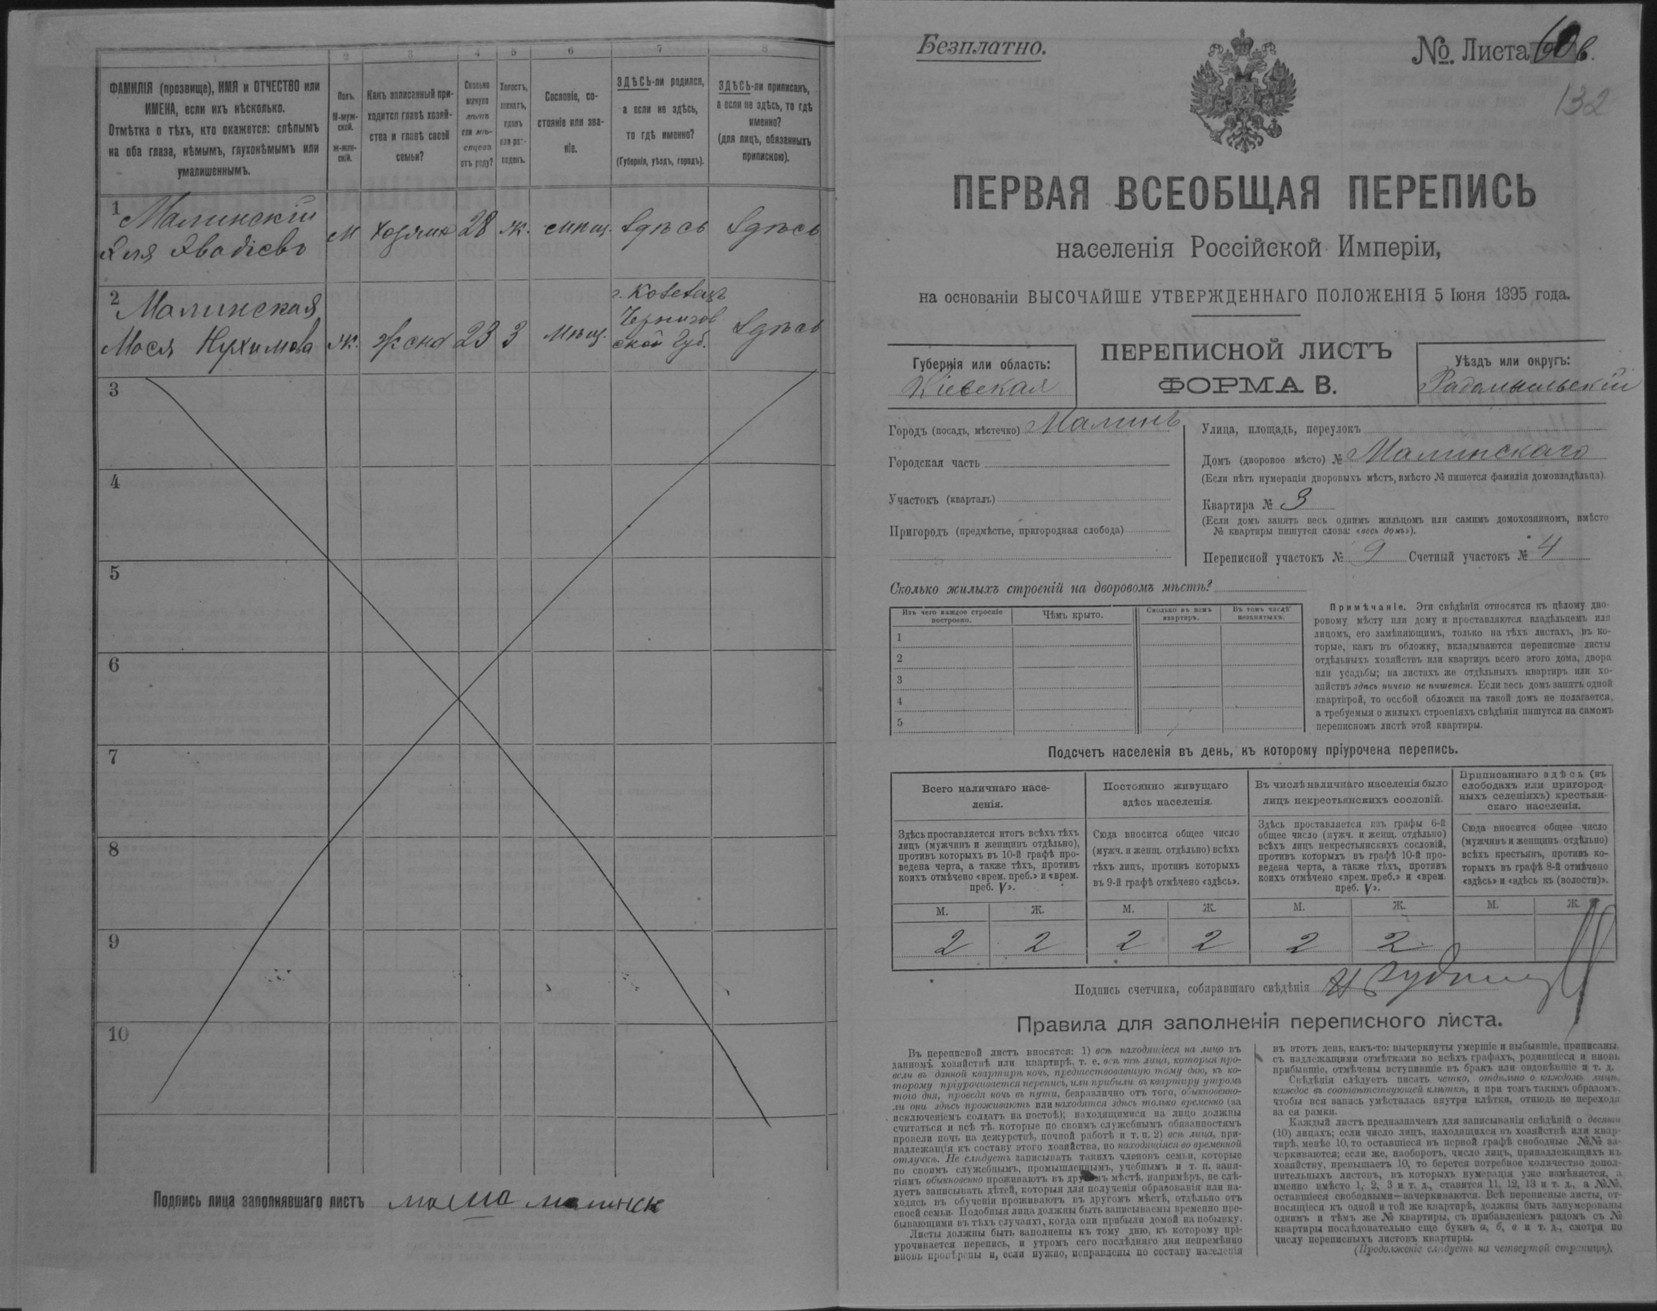 1
2
3
4
5
6
7
8
ФАМИЛІЯ (прозвище), ИМЯ и ОТЧЕСТВО или
ИМЕНА, если ихъ нѣсколько.
Отмѣтка о тѣхъ, кто окажется: слѣпымъ
на оба глаза, нѣмымъ, глухонѣмымъ или
умалишеннымъ.
Полъ.
М-муж-
ской.
Ж-жен-
скій.
Какъ записанный при-
ходится главѣ хозяй-
ства и главѣ своей
семьи?
Сколько
минуло
лѣтъ
или мѣ-
сяцевъ
отъ роду?
Холостъ,
женатъ,
вдовъ
или раз-
веденъ.
Сословіе, со-
стояніе или зва-
ніе.
ЗДѢСЬ-ли родился,
а если не здѣсь,
то гдѣ именно?
(Губернія, уѣздъ, городъ).
ЗДѢСЬ-ли приписанъ,
а если не здѣсь, то гдѣ
именно?
(для лицъ, обязанныхъ
припискою).
1 Малинскій
М
хозяинъ
28
ж.
мѣщ.
Здѣсь
Здѣсь
2 Малинская
Мося Нухимова
ж.
жена
23
З
мѣщ.
Чернигов
ской Губ.
Здѣсь
3
4
5
6
7
8
9
10
Подпись лица заполнявшаго листъ
Безплатно.
№. Листа
132
ПЕРВАЯ ВСЕОБЩАЯ ПЕРЕПИСЬ
населенія Россійской Имперіи,
на основаніи ВЫСОЧАЙШЕ УТВЕРЖДЕННАГО ПОЛОЖЕНІЯ 5 Іюня 1895 года.
Губернія или область:
Кіевская
ПЕРЕПИСНОЙ ЛИСТЪ
ФОРМА В.
Уѣздъ или округъ:
Радомысльскій
Городъ (посадъ, мѣстечко) Малинъ
Городская часть
Участокъ (кварталъ)
Пригородъ (предмѣстье, пригородная слобода)
Улица, площадь, переулокъ
Домъ (дворовое мѣсто) № Малинскаго
(Если нѣтъ нумераціи дворовыхъ мѣстъ, вмѣсто № пишется фамилія домовладѣльца).
Квартира № 3
(Если домъ занятъ весь однимъ жильцомъ или самимъ домохозяиномъ, вмѣсто
№ квартиры пишутся слова: «весь домъ»).
Переписной участокъ № 9 Счетный участокъ № 4
Сколько жилыхъ строеній на дворовомъ мѣстѣ?
Изъ чего каждое строеніе
построено.
Чѣмъ крыто.
Сколько въ немъ
квартиръ.
Въ томъ числѣ
незанятыхъ.
1
2
3
4
5
Примѣчаніе. Эти свѣдѣнія относятся къ цѣлому дво-
ровому мѣсту или дому и проставляются владѣльцемъ или
лицомъ, его замѣняющимъ, только на тѣхъ листахъ, въ ко-
торые, какъ въ обложку, вкладываются переписные листы
отдѣльныхъ хозяйствъ или квартиръ всего этого дома, двора
или усадьбы; на листахъ же отдѣльныхъ квартиръ или хо-
зяйствъ здѣсь ничего не пишется. Если весь домъ занятъ одной
квартирой, то особой обложки на такой домъ не полагается,
а требуемыя о жилыхъ строеніяхъ свѣдѣнія пишутся на самомъ
переписномъ листѣ этой квартиры.
Подсчетъ населенія въ день, къ которому пріурочена перепись.
Всего наличнаго насе-
ленія.
Постоянно живущаго
здѣсь населенія.
Въ числѣ наличнаго населенія было
лицъ некрестьянскихъ сословій.
Приписаннаго здѣсь (въ
слободахъ или пригород-
ныхъ селеніяхъ) крестьян-
скаго населенія.
Здѣсь проставляется итогъ всѣхъ тѣхъ
лицъ (мужчинъ и женщинъ отдѣльно),
противъ которыхъ въ 10-й графѣ про-
ведена черта, а также тѣхъ, противъ
коихъ отмѣчено «врем. преб.» и «врем.
преб. V».
Сюда вносится общее число
(мужч. и женщ. отдѣльно) всѣхъ
тѣхъ лицъ, противъ которыхъ
въ 9-й графѣ отмѣчено «здѣсь».
Здѣсь проставляется изъ графы 6-й
общее число (мужч. и женщ. отдѣльно)
всѣхъ лицъ некрестьянскихъ сословій,
противъ которыхъ въ графѣ 10-й про-
ведена черта, а также тѣхъ, противъ
коихъ отмѣчено «врем. преб.» и «врем.
преб. V».
Сюда вносится общее число
(мужчинъ и женщинъ отдѣльно)
всѣхъ крестьянъ, противъ ко-
торыхъ въ графѣ 8-й отмѣчено
«здѣсь» и «здѣсь къ (волости)».
М. Ж. М. Ж. М. Ж. М. Ж.
2 2 2 2 2 2
Подпись счетчика, собиравшаго свѣдѣнія
Правила для заполненія переписного листа.
Въ переписной листъ вносятся: 1) всѣ находящіеся на лицо въ
данномъ хозяйствѣ или квартирѣ, т. е. всѣ тѣ лица, которыя про-
вели въ данной квартирѣ ночь, предшествовавшую тому дню, къ ко-
торому пріурочивается перепись, или прибыли въ квартиру утромъ
того дня, проведя ночь въ пути, безразлично отъ того, обыкновенно-
ли они здѣсь проживаютъ или находятся здѣсь только временно (за
исключеніемъ солдатъ на постоѣ); находящимися на лицо должны
считаться и всѣ тѣ, которые по своимъ служебнымъ обязанностямъ
провели ночь на дежурствѣ, ночной работѣ и т. п. 2) всѣ лица, при-
надлежащія къ составу этого хозяйства, но находящіяся во временной
отлучкѣ. Не слѣдуетъ записывать такихъ членовъ семьи, которые
по своимъ служебнымъ, промышленнымъ, учебнымъ и т. п. заня-
тіямъ обыкновенно проживаютъ въ другомъ мѣстѣ, напримѣръ, не слѣ-
дуетъ записывать дѣтей, которыя для полученія образованія или на-
ходясь въ обученіи проживаютъ въ другомъ мѣстѣ, отдѣльно отъ
своей семьи. Подобныя лица должны быть записываемы временно пре-
бывающими въ тѣхъ случаяхъ, когда они прибыли домой на побывку.
Листы должны быть заполнены къ тому дню, къ которому прі-
урочивается перепись, и утромъ сего послѣдняго дня непремѣнно
вновь провѣрены и, если нужно, исправлены по составу населенія
въ этотъ день, какъ-то: вычеркнуты умершіе и выбывшіе, приписаны,
съ надлежащими отмѣтками во всѣхъ графахъ, родившіеся и вновь
прибывшіе, отмѣчены вступившіе въ бракъ или овдовѣвшіе и т. д.
Свѣдѣнія слѣдуетъ писать четко, отдѣльно о каждомъ лицѣ,
каждое въ соотвѣтствующей клѣткѣ, и при томъ такимъ образомъ,
чтобы вся запись умѣстилась внутри клѣтки, отнюдь не переходя
за ея рамки.
Каждый листъ предназначенъ для записыванія свѣдѣній о десяти
(10) лицахъ; если число лицъ, находящихся въ хозяйствѣ или квар-
тирѣ, менѣе 10, то оставшіеся въ первой графѣ свободные №№ за-
черкиваются; если же, наоборотъ, число лицъ, принадлежащихъ къ
хозяйству, превышаетъ 10, то берется потребное количество допол-
нительныхъ листовъ, въ которыхъ нумерація уже измѣняется, а
именно вмѣсто 1, 2, 3 и т. д., ставится 11, 12, 13 и т. д., а №№,
оставшіеся свободными—зачеркиваются. Всѣ переписные листы, от-
носящіеся къ одной и той же квартирѣ, должны быть занумерованы
однимъ и тѣмъ же № квартиры, съ прибавленіемъ рядомъ съ №
квартиры послѣдовательно еще буквъ а, б, в и т. д., смотря по
числу переписныхъ листовъ квартиры.
(Продолженіе слѣдуетъ на четвертой страницѣ).